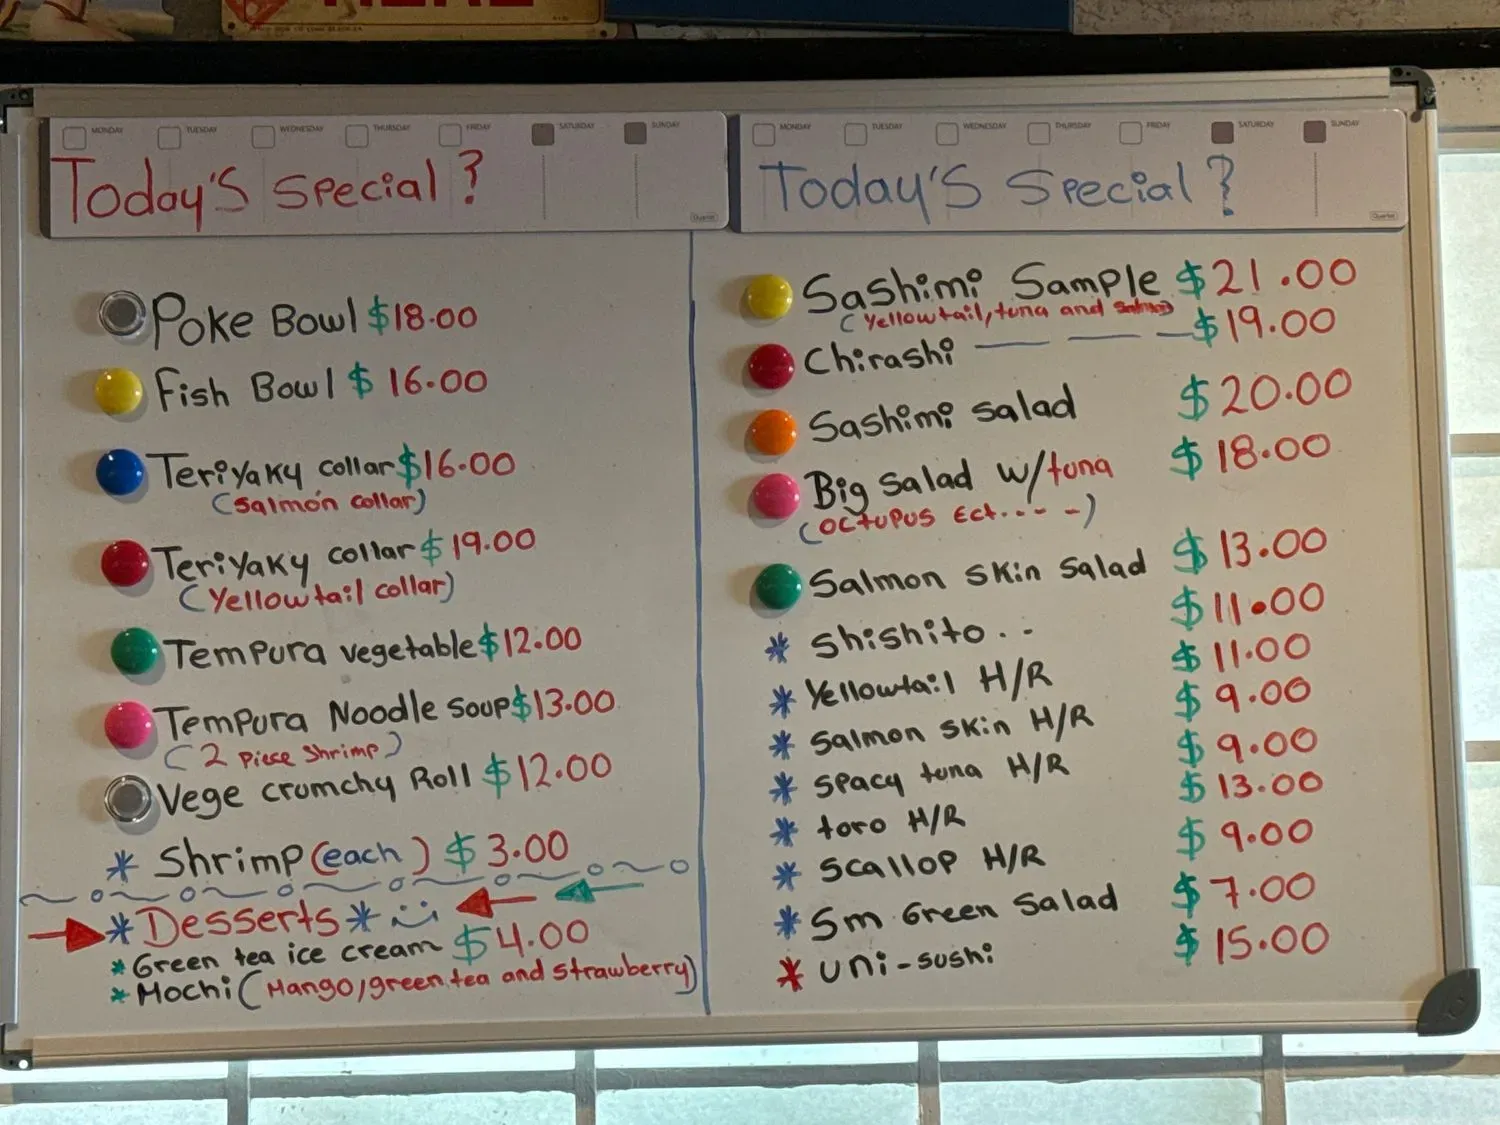 HERE
MONDAY TUESDAY WEDNESDAY THURSDAY FRIDAY SATURDAY SUNDAY
Today's Special?
Quartet
Poke Bowl $18.00
Fish Bowl $16.00
Teriyaky collar $16.00
(Salmon collar)
Teriyaky collar $19.00
(Yellowtail collar)
Tempura vegetable $12.00
Tempura Noodle soup $13.00
(2 piece shrimp)
Vege crumchy Roll $12.00
* Shrimp (each) $3.00
* Desserts *
* Green tea ice cream $4.00
* Mochi (Mango/green tea and strawberry)
MONDAY TUESDAY WEDNESDAY THURSDAY FRIDAY SATURDAY SUNDAY
Today's Special?
Quartet
Sashimi Sample $21.00
(Yellowtail, tuna and Salmon)
Chirashi — — — $19.00
Sashimi salad $20.00
Big Salad w/tuna $18.00
(Octupus Ect.. - - -)
Salmon skin salad $13.00
* Shishito . . $11.00
* Yellowtail H/R $11.00
* Salmon skin H/R $9.00
* spacy tuna H/R $9.00
* toro H/R $13.00
* scallop H/R $9.00
* Sm Green Salad $7.00
* uni-sushi $15.00